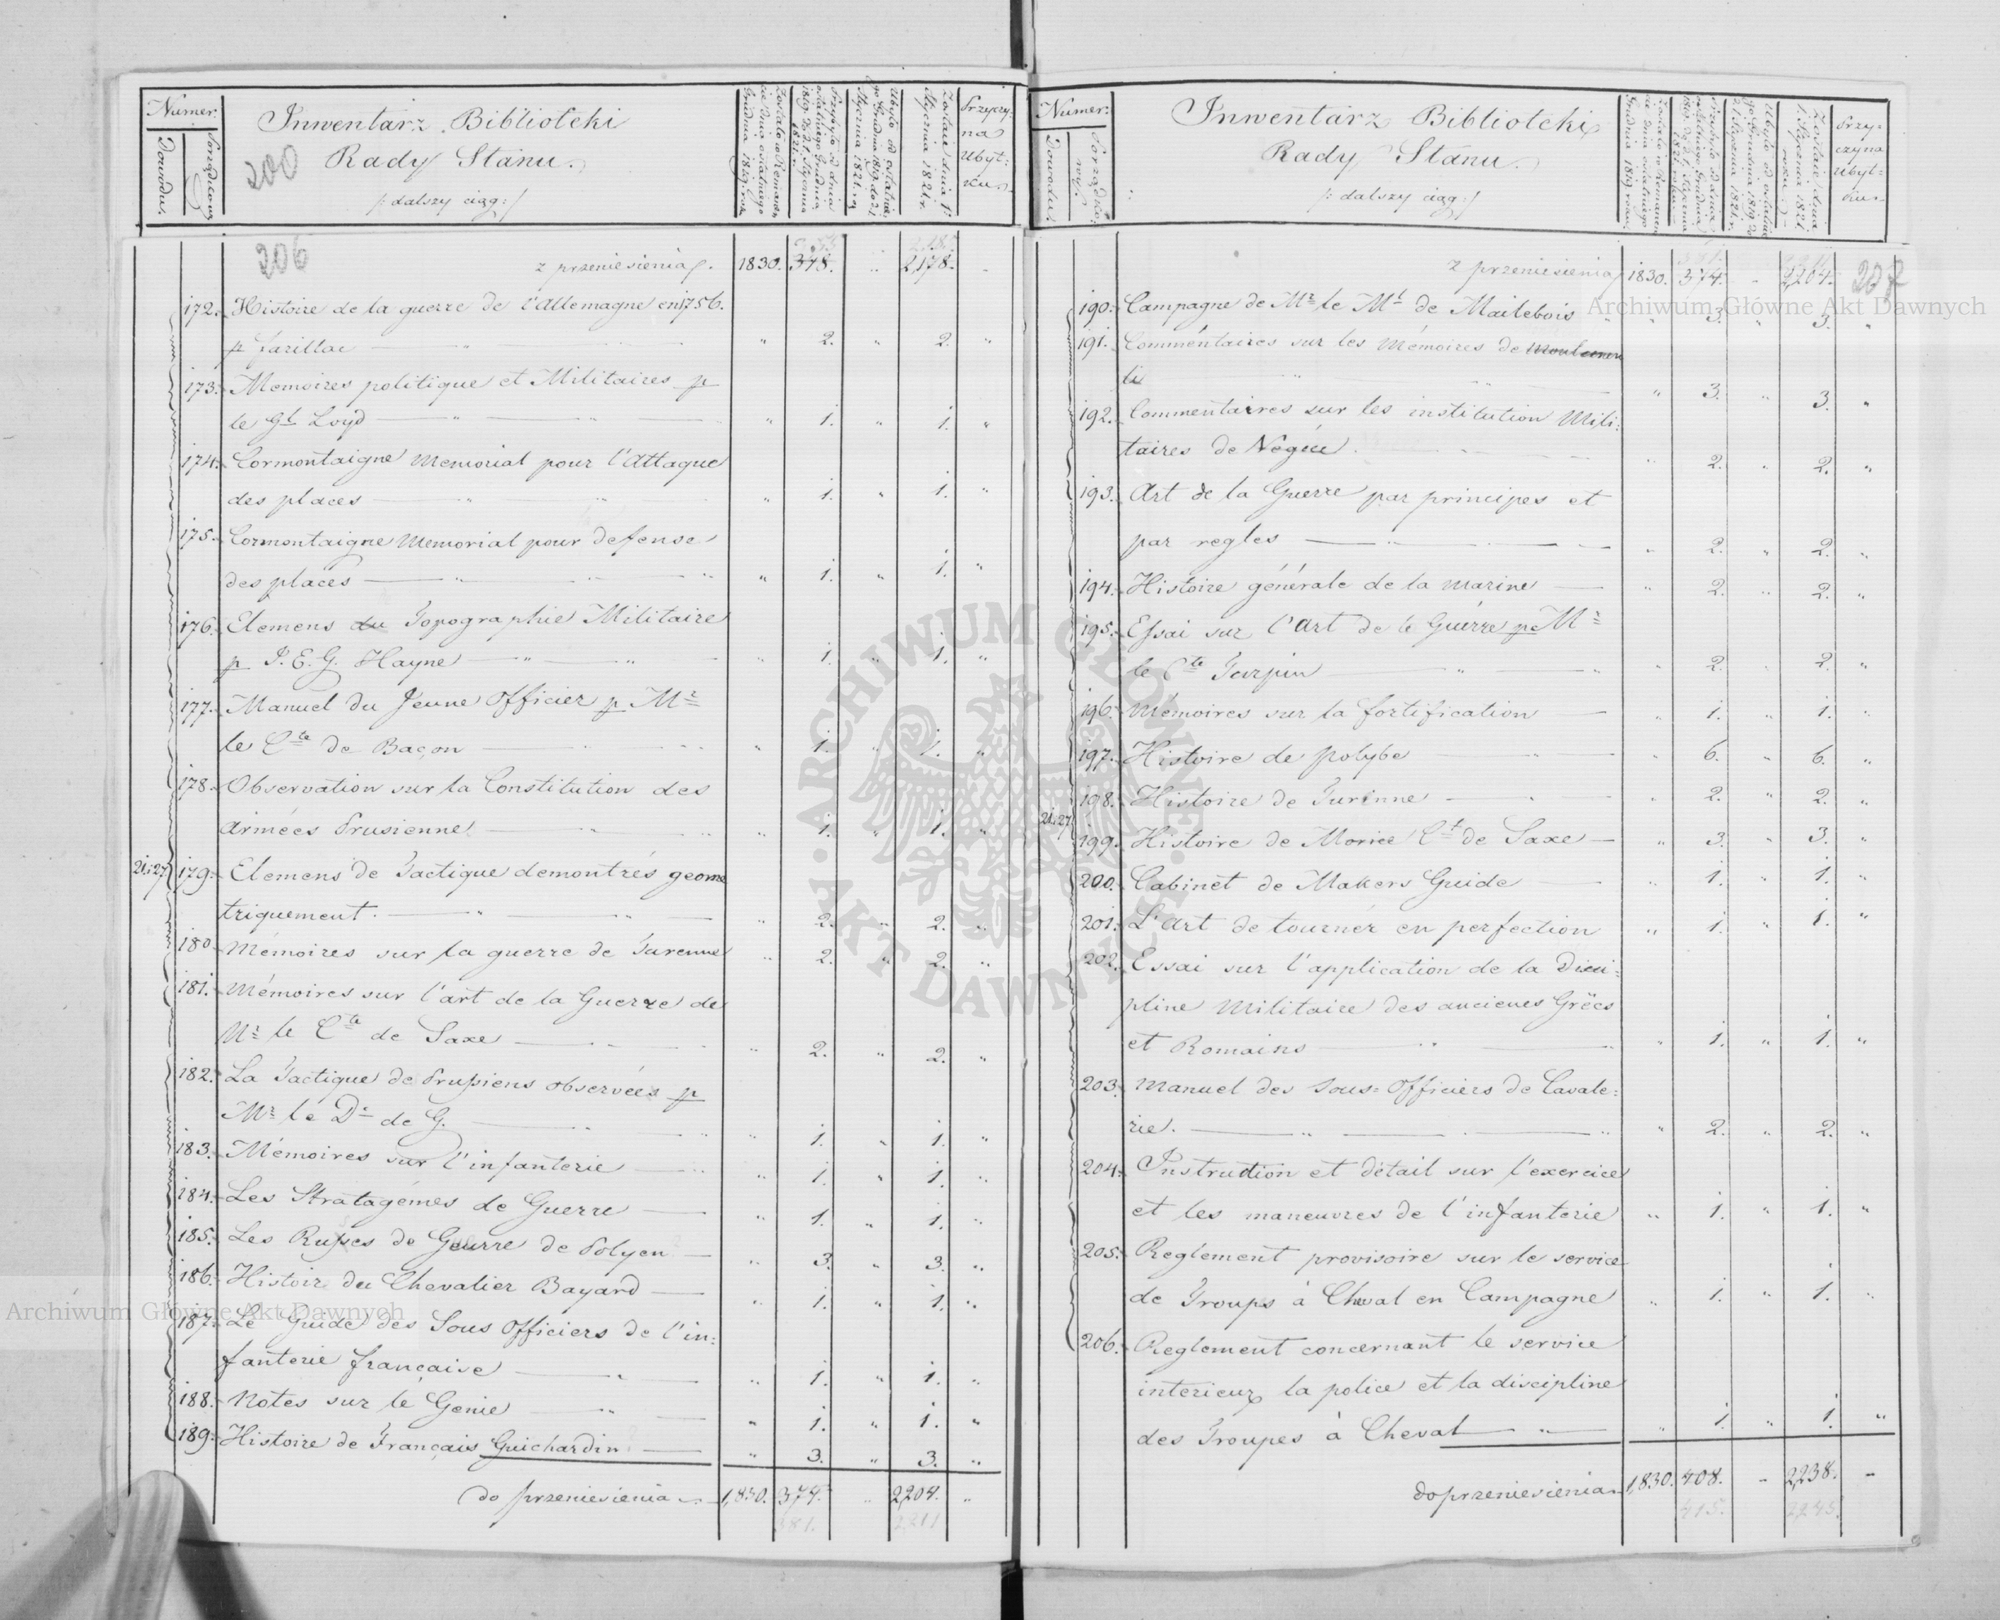 Numer
Dowodu.
Porządkowy
Inwentarz Biblioteki
Rady Stanu.
/: dalszy ciąg :/
200
Przyczy-
na
Ubyt-
ku.
206
z przeniesienia. 1830. 348. " 2,178. "
172. Histoire de la guerre de l'Allemagne en 1756.
p farillac " 2. " 2. "
173. Memoires politique et Militaires p
le Gl Loyd " 1. " 1. "
174. Cormontaigne Memorial pour l'Attaque
des places " 1. " 1. "
175. Cormontaigne Memorial pour defense
des places " 1. " 1. "
176. Elemens du Topographie Militaire
p I. E. G. Hayne " 1. " 1. "
177. Manuel du Jeune Officier p Mr
le Cte de Baçon " 1. " 1. "
178. Observation sur la Constitution des
Armées Prusienne " 1. " 1. "
21:27 179. Elemens de Tactique demontrés geome
triquement. " 2. " 2. "
180. Mémoires sur la guerre de Turenne " 2. " 2. "
181. Mémoires sur l'art de la Guerre de
Mr le Cte de Saxe " 2. " 2. "
182. La Tactique de Prussiens observées p
Mr le Dr de G. " 1. " 1. "
183. Mémoires sur l'infanterie " 1. " 1. "
184. Les Stratagémes de Guerre " 1. " 1. "
185. Les Ruses de Geurre de Polyen " 3. " 3. "
186. Histoire du Chevalier Bayard " 1. " 1. "
187. Le Guide des Sous Officiers de l'in-
fanterie française " 1. " 1. "
188. Notes sur le Genie " 1. " 1. "
189. Histoire de Français Guichardin " 3. " 3. "
do przeniesienia 1,830. 374. " 2,204. "
381. 2,211
Numer.
Dowodu.
Porządko-
wy.
Inwentarz Biblioteki
Rady Stanu.
/: dalszy ciąg :/
Przy-
czyna
Ubyt-
ku.
z przeniesienia 1830. 374. - 2,204. 207
190. Campagne de Mr le Ml de Mailebois " 3. " 3. "
191. Comméntaires sur les Mémoires de
" 3. " 3. "
192. Commentaires sur les institution Mili-
taires de Végèce. " 2. " 2. "
193. Art de la Guerre par principes et
par regles " 2. " 2. "
194. Histoire générale de la Marine " 2. " 2. "
195. Essai sur l'Art de le Guérre p Mr
le Cte Turpin " 2. " 2. "
196. Mémoires sur la fortification " 1. " 1. "
197. Histoire de polybe " 6. " 6. "
198. Histoire de Turinne " 2. " 2. "
21:27 199. Histoire de Morice Ct de Saxe " 3. " 3. "
200. Cabinet de Makers Guide " 1. " 1. "
201. L'Art de tourner en perfection " 1. " 1. "
202. Essai sur l'application de la Disci-
pline Militaire des ancienes Grëcs
et Romains " 1. " 1. "
203. Manuel des Sous-Officiers de Cavale-
rie. " 2. " 2. "
204. Instrution et détail sur l'exercice
et les maneuvres de l'infanterie " 1. " 1. "
205. Reglement provisoire sur le service
de Troups à Cheval en Campagne " 1. " 1. "
206. Reglement concernant le service
interieur la police et la discipline
des Troupes à Cheval " 1. " 1. "
do przeniesienia 1,830. 408. - 2,238. -
415. 2,245.
Archiwum Główne Akt Dawnych
Archiwum Główne Akt Dawnych
ARCHIWUM GŁÓWNE AKT DAWNYCH